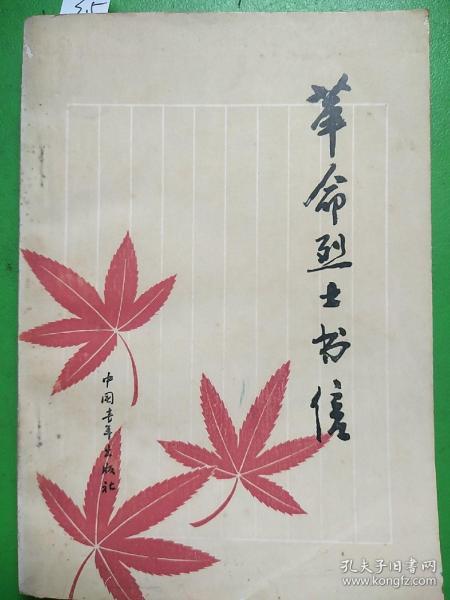 3.5
革命烈士书信
中国青年出版社
孔夫子旧书网
www.kongfz.com